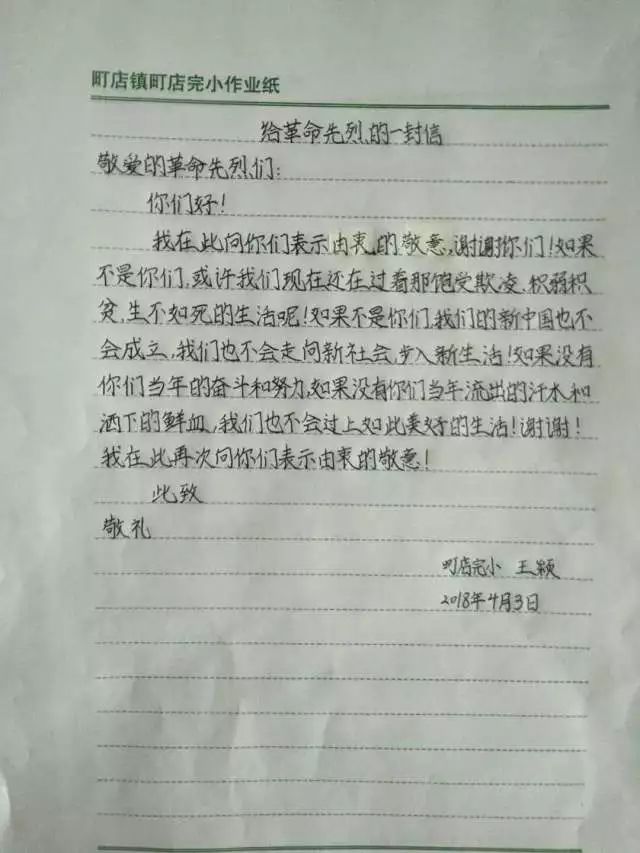 町店镇町店完小作业纸
给革命先烈的一封信
敬爱的革命先烈们:
你们好!
我在此向你们表示由衷的敬意,谢谢你们!如果
不是你们,或许我们现在还在过着那饱受欺凌,积弱积
贫,生不如死的生活呢!如果不是你们,我们的新中国也不
会成立,我们也不会走向新社会,步入新生活!如果没有
你们当年的奋斗和努力,如果没有你们当年流出的汗水和
洒下的鲜血,我们也不会过上如此美好的生活!谢谢!
我在此再次向你们表示由衷的敬意!
此致
敬礼
町店完小 王颖
2018年4月3日